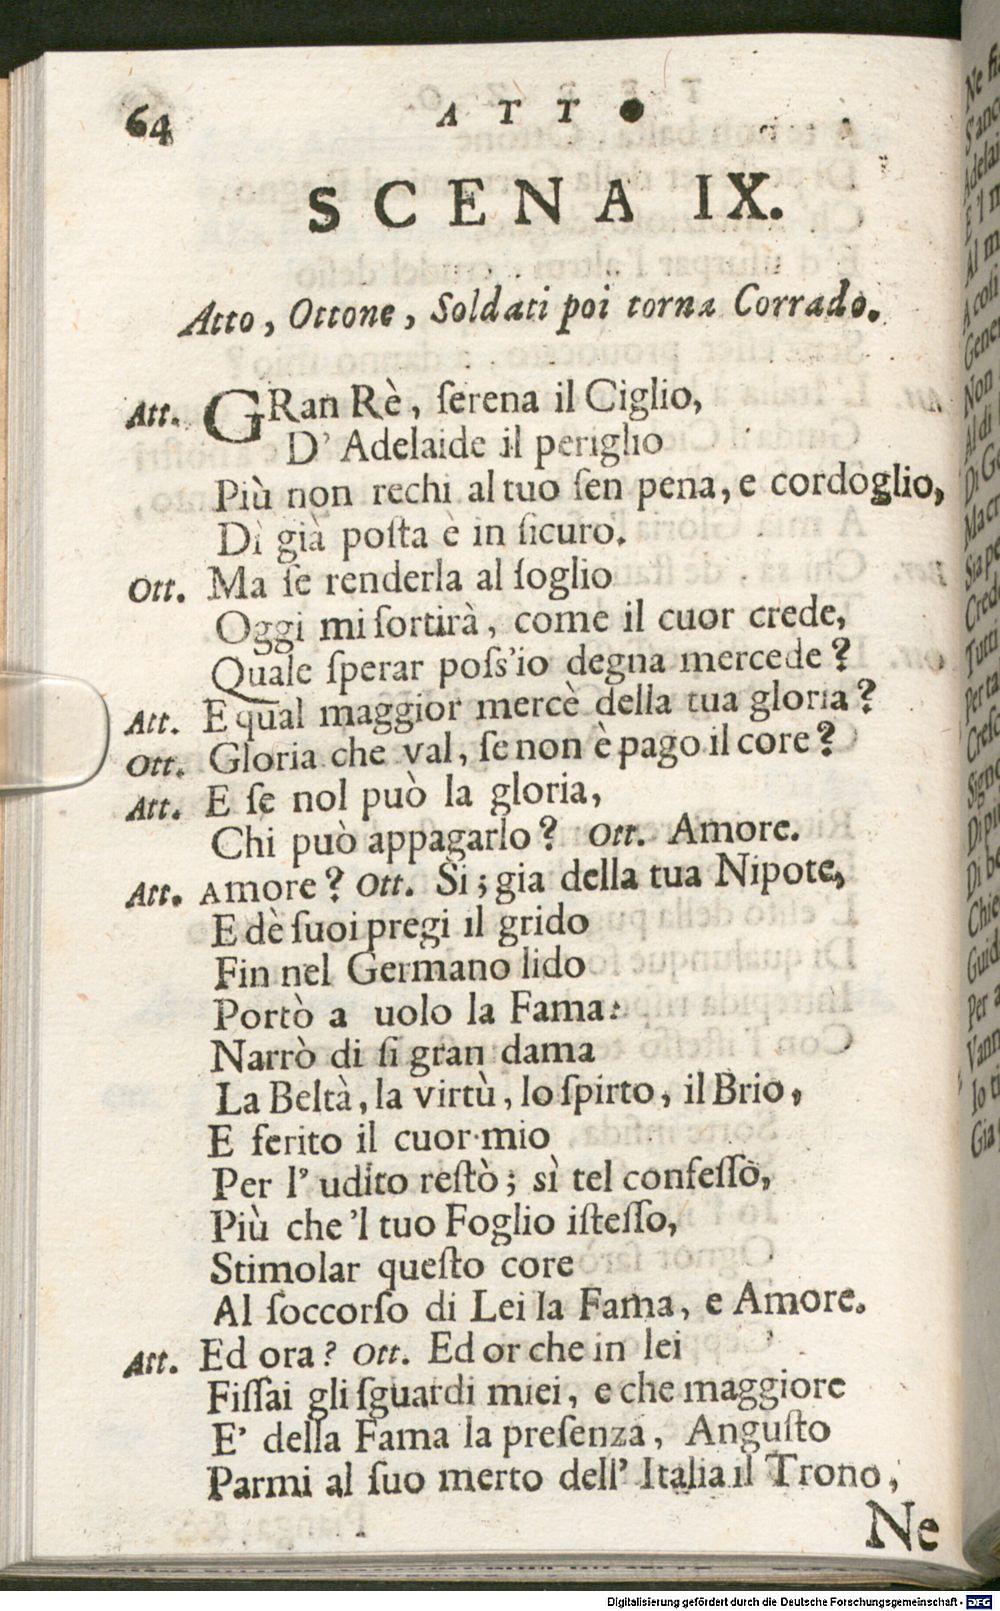 64 ATTO
SCENA IX.
Atto, Ottone, Soldati poi torna Corrado.
Att. GRan Rè, ſerena il Ciglio,
D' Adelaide il periglio
Più non rechi al tuo ſen pena, e cordoglio,
Di già poſta è in ſicuro.
Ott. Ma ſe renderla al ſoglio
Oggi mi ſortirà, come il cuor crede,
Quale ſperar poſs'io degna mercede?
Att. E qual maggior mercè della tua gloria?
Ott. Gloria che val, ſe non è pago il core?
Att. E ſe nol può la gloria,
Chi può appagarlo? Ott. Amore.
Att. Amore? Ott. Si; gia della tua Nipote,
E dè ſuoi pregi il grido
Fin nel Germano lido
Portò a uolo la Fama:
Narrò di ſi gran dama
La Beltà, la virtù, lo ſpirto, il Brio,
E ferito il cuor mio
Per l' udito reſtò; sì tel confeſſo,
Più che 'l tuo Foglio iſteſſo,
Stimolar queſto core
Al ſoccorſo di Lei la Fama, e Amore.
Att. Ed ora? Ott. Ed or che in lei
Fiſſai gli ſguardi miei, e che maggiore
E' della Fama la preſenza, Anguſto
Parmi al ſuo merto dell' Italia il Trono,
Ne
Digitalisierung gefördert durch die Deutsche Forschungsgemeinschaft - DFG